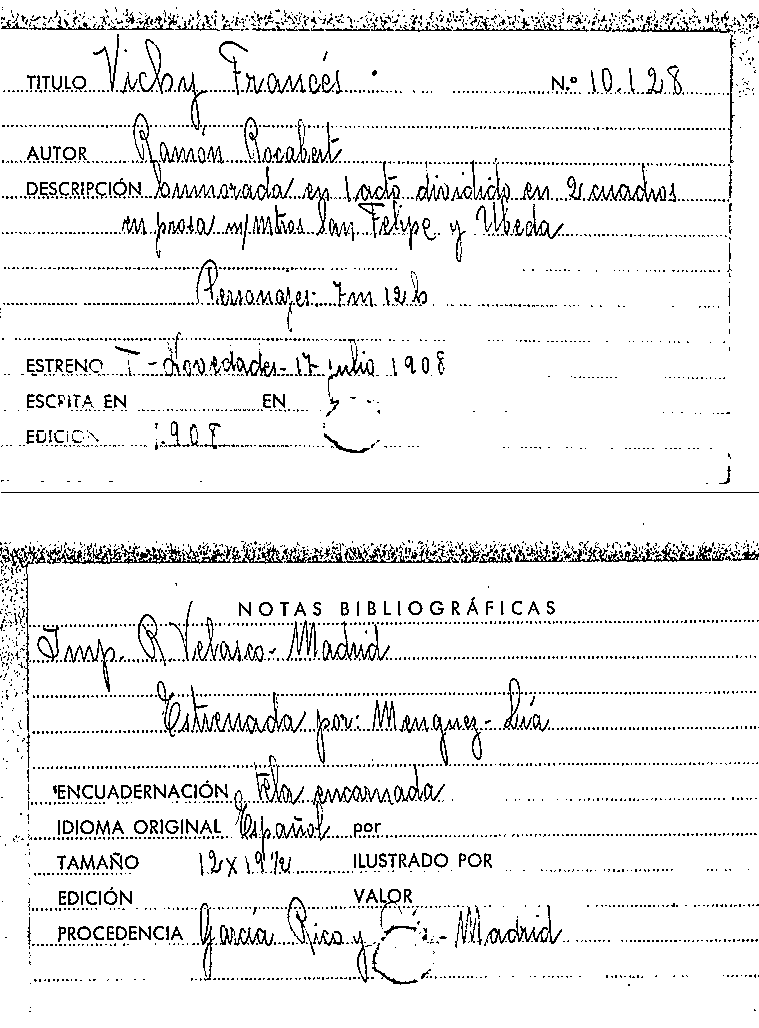 TITULO Vichy Francés. N.º 10.128
AUTOR Ramón Rocabert
DESCRIPCIÓN humorada en 1 acto dividido en 2 cuadros
en prosa m/mtros San Felipe y Ubeda
Personajes- 7m 12h
ESTRENO T-Novedades-17 julio 1908
ESCRITA EN EN
EDICION 1908
NOTAS BIBLIOGRÁFICAS
Imp. R Velasco- Madrid
Estrenada por: Menguez- Lía
ENCUADERNACIÓN tela encarnada
IDIOMA ORIGINAL Español por
TAMAÑO 12x19½ ILUSTRADO POR
EDICIÓN VALOR
PROCEDENCIA García Rico y - Madrid